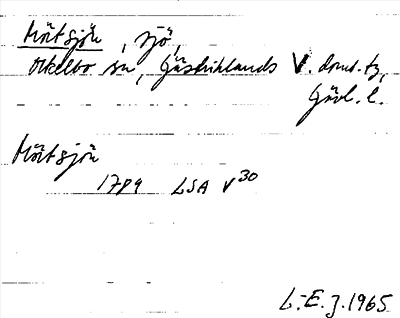 Mörtsjön, sjö,
Ockelbo sn, Gästriklands V. doms.tg,
Gävl. l.
Mörtsjön
1789 LSA V30
L-E. J. 1965